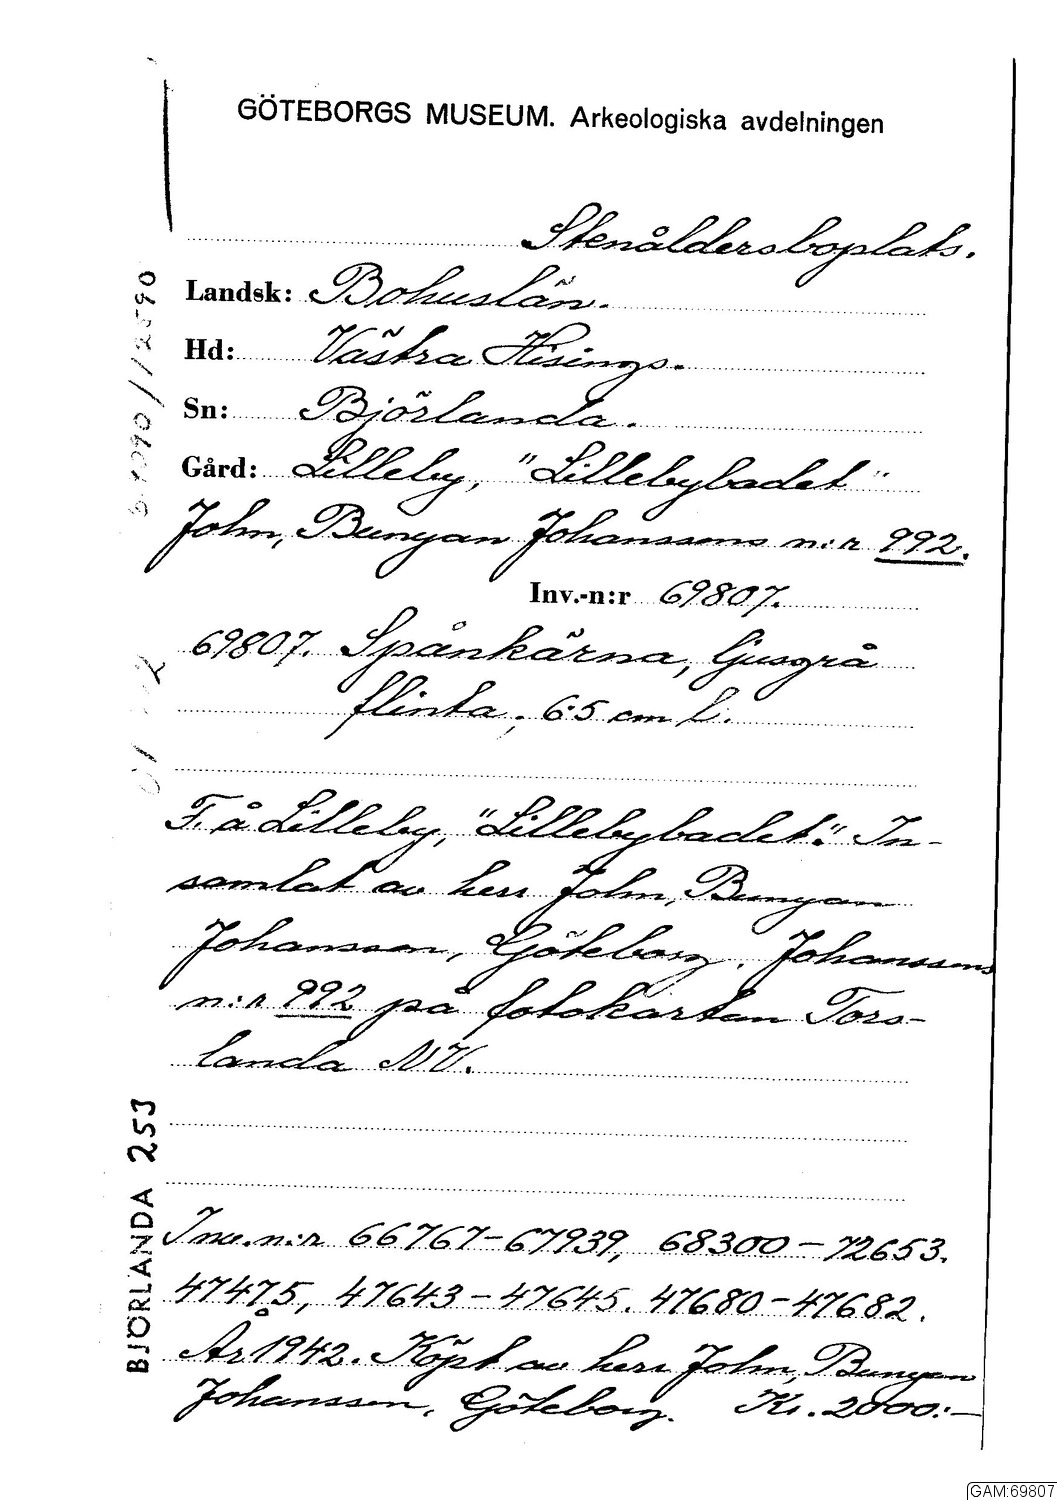 GÖTEBORGS MUSEUM. Arkeologiska avdelningen
Stenåldersboplats.
Landsk: Bohuslän.
Hd: Västra Hisings.
Sn: Björlanda.
Gård: Lilleby, "Lillebybadet"
John, Bunyan Johanssons n:r 992.
Inv.-n:r 69807.
69807. Spånkärna, ljusgrå
flinta, 6.5 cm l.
F. å Lilleby, "Lillebybadet". In-
samlat av herr John, Bunyan
Johansson, Göteborg. Johanssons
n:r 992 på fotokartan Tors-
landa NV.
Inv.n:r 66767-67939, 68300-72653.
47475, 47643-47645. 47680-47682.
År 1942. Köpt av herr John, Bunyan
Johansson, Göteborg. Kr. 2000:-
BJÖRLANDA 253
GAM:69807